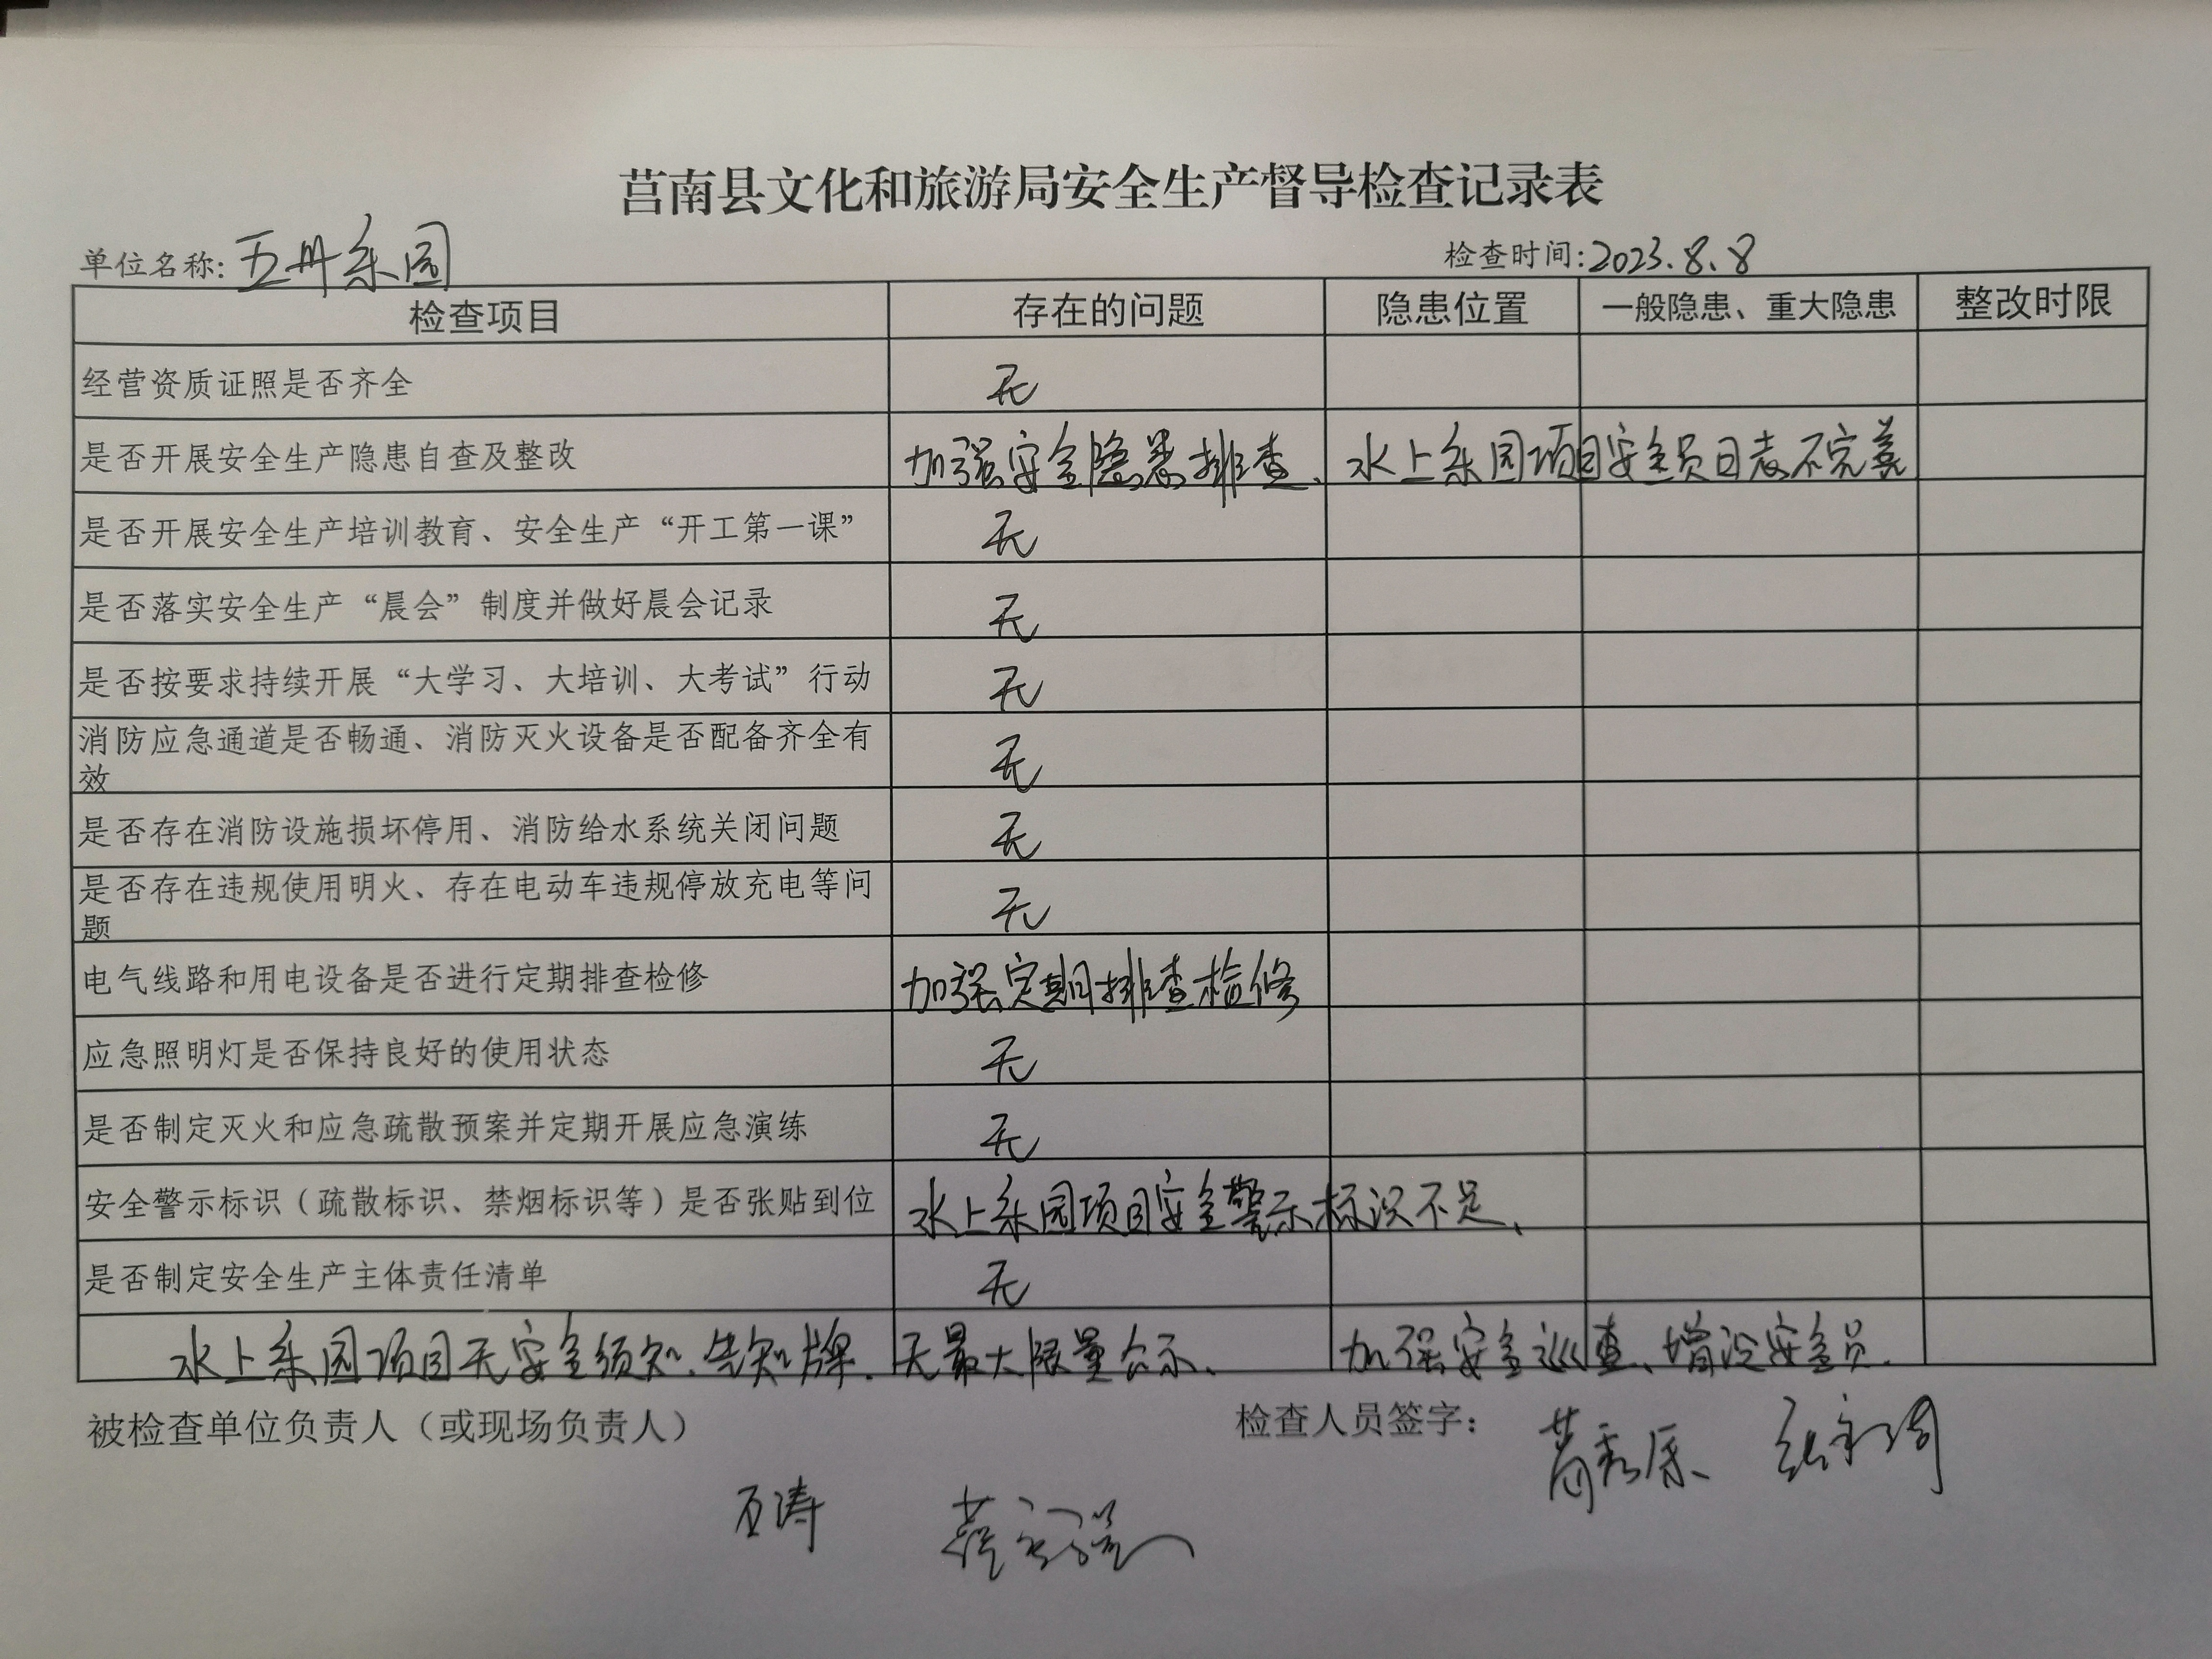 莒南县文化和旅游局安全生产督导检查记录表
单位名称: 五卅乐园 检查时间: 2023.8.8
检查项目 存在的问题 隐患位置 一般隐患、重大隐患 整改时限
经营资质证照是否齐全 无
是否开展安全生产隐患自查及整改 加强安全隐患排查、 水上乐园项目安全员日志不完善
是否开展安全生产培训教育、安全生产“开工第一课” 无
是否落实安全生产“晨会”制度并做好晨会记录 无
是否按要求持续开展“大学习、大培训、大考试”行动 无
消防应急通道是否畅通、消防灭火设备是否配备齐全有
效 无
是否存在消防设施损坏停用、消防给水系统关闭问题 无
是否存在违规使用明火、存在电动车违规停放充电等问
题 无
电气线路和用电设备是否进行定期排查检修 加强定期排查检修
应急照明灯是否保持良好的使用状态 无
是否制定灭火和应急疏散预案并定期开展应急演练 无
安全警示标识（疏散标识、禁烟标识等）是否张贴到位 水上乐园项目安全警示标识不足、
是否制定安全生产主体责任清单 无
水上乐园项目无安全须知、告知牌. 无最大限量公示、 加强安全巡查、增设安全员.
被检查单位负责人（或现场负责人） 检查人员签字：
石涛